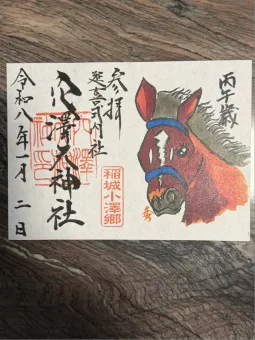 丙午歳
参拝
延喜式内社
穴澤天神社
令和八年一月二日
稲城小澤郷